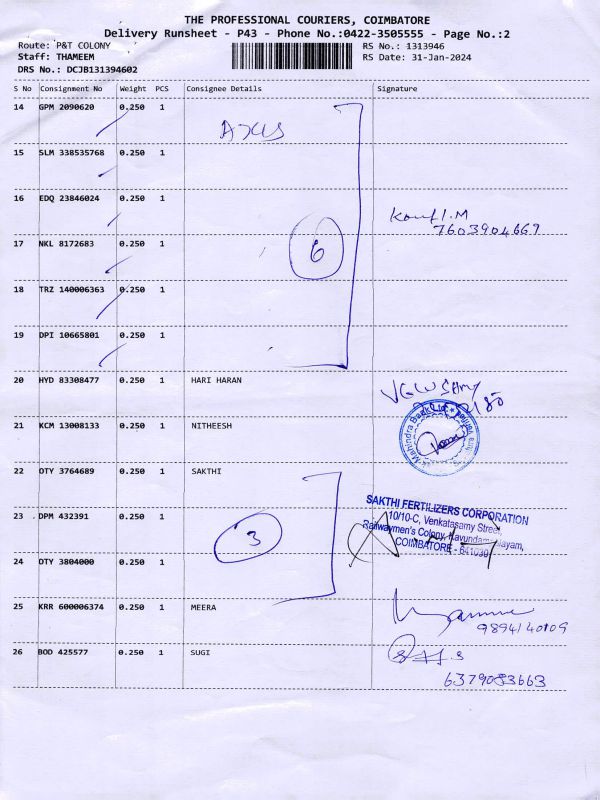 THE PROFESSIONAL COURIERS, COIMBATORE
Delivery Runsheet - P43 - Phone No.:0422-3505555 - Page No.:2
Route: P&T COLONY RS No.: 1313946
Staff: THAMEEM RS Date: 31-Jan-2024
DRS No.: DCJB131394602
S No Consignment No Weight PCS Consignee Details Signature
14 GPM 2090620 0.250 1
15 SLM 338535768 0.250 1
16 EDQ 23846024 0.250 1
7603904669
17 NKL 8172683 0.250 1
6
18 TRZ 140006363 0.250 1
19 DPI 10665801 0.250 1
20 HYD 83308477 0.250 1 HARI HARAN
21 KCM 13008133 0.250 1 NITHEESH
Mahindra Bank Ltd
22 OTY 3764689 0.250 1 SAKTHI
SAKTHI FERTILIZERS CORPORATION
23 DPM 432391 0.250 1
10/10-C, Venkatasamy Street,
Railwaymen's Colony, Kavundampalayam,
3
COIMBATORE - 641030
24 OTY 3804000 0.250 1
25 KRR 600006374 0.250 1 MEERA
9894140109
26 BOD 425577 0.250 1 SUGI
6379083663